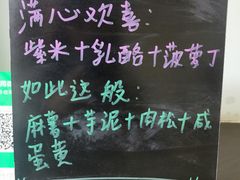 满心欢喜:
紫米+乳酪+菠萝丁
如此这般:
麻薯+芋泥+肉松+咸
蛋黄